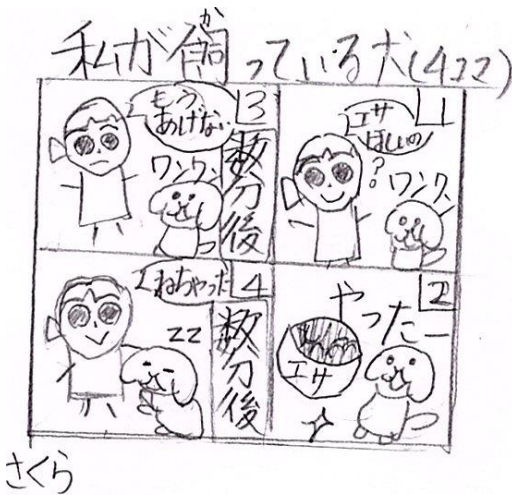 か
私が飼っている犬(4コマ)
1
エサ
ほしいの
?
ワンワン
2
やったー
エサ
3
数分後
もう
あげない
ワンワン
4
数分後
ねちゃった
zz
さくら